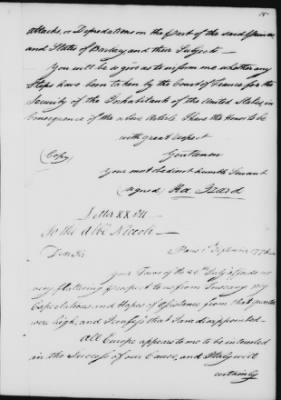 attacks, or Depredations on the Part of the said Princes
and States of Barbary and their Subjects —
You will be so good as to inform me whether any
Steps have been taken by the Court of France for the
Security of the Inhabitants of the United States, in
Consequence of the above Article I have the Honor to be
with great respect
Gentlemen
(Copy) Your most obedient humble Servant
signed Ra. Izard
Letter XXVII
To the Abbé Niccoli —
Paris 1st September 1778
Dear Sir
your Favor of the 28th July affords no
very flattering prospect to us from Tuscany my
Expectations, and Hopes of Assistance from that quarter
were high, and I confess that I am disappointed —
All Europe appears to me to be interested
in the Success of our Cause, and Italy will
certainly